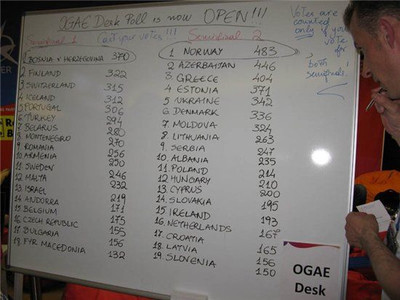 OGAE Desk Poll is now OPEN!!!
Semifinal 1
Cast your votes!!!
1 BOSNIA & HERZEGOVINA 370
2 FINLAND 322
3 SWITZERLAND 315
4 ICELAND 312
5 PORTUGAL 306
6 TURKEY 294
7 BELARUS 280
8 MONTENEGRO 270
9 ROMANIA 256
10 ARMENIA 250
11 SWEDEN 246
12 MALTA 232
13 ISRAEL 219
14 ANDORRA 171
15 BELGIUM
16 CZECH REPUBLIC 175
17 BULGARIA 155
18 FYR MACEDONIA 132
Semifinal 2
1 NORWAY 483
2 AZERBAYTAN 446
3 GREECE 404
4 ESTONIA 371
5 UKRAINE 342
6 DENMARK 336
7 MOLDOVA 324
8 LITHUANIA 263
9 SERBIA 247
10 ALBANIA 235
11 POLAND 214
12 HUNGARY 210
13 CYPRUS 200
14 SLOVAKIA 195
15 IRELAND 193
16 NETHERLANDS 167
17 CROATIA 165
18 LATVIA 156
19 SLOVENIA 150
Votes are
counted
only if
you
vote
for
both
semifinals!
OGAE
Desk